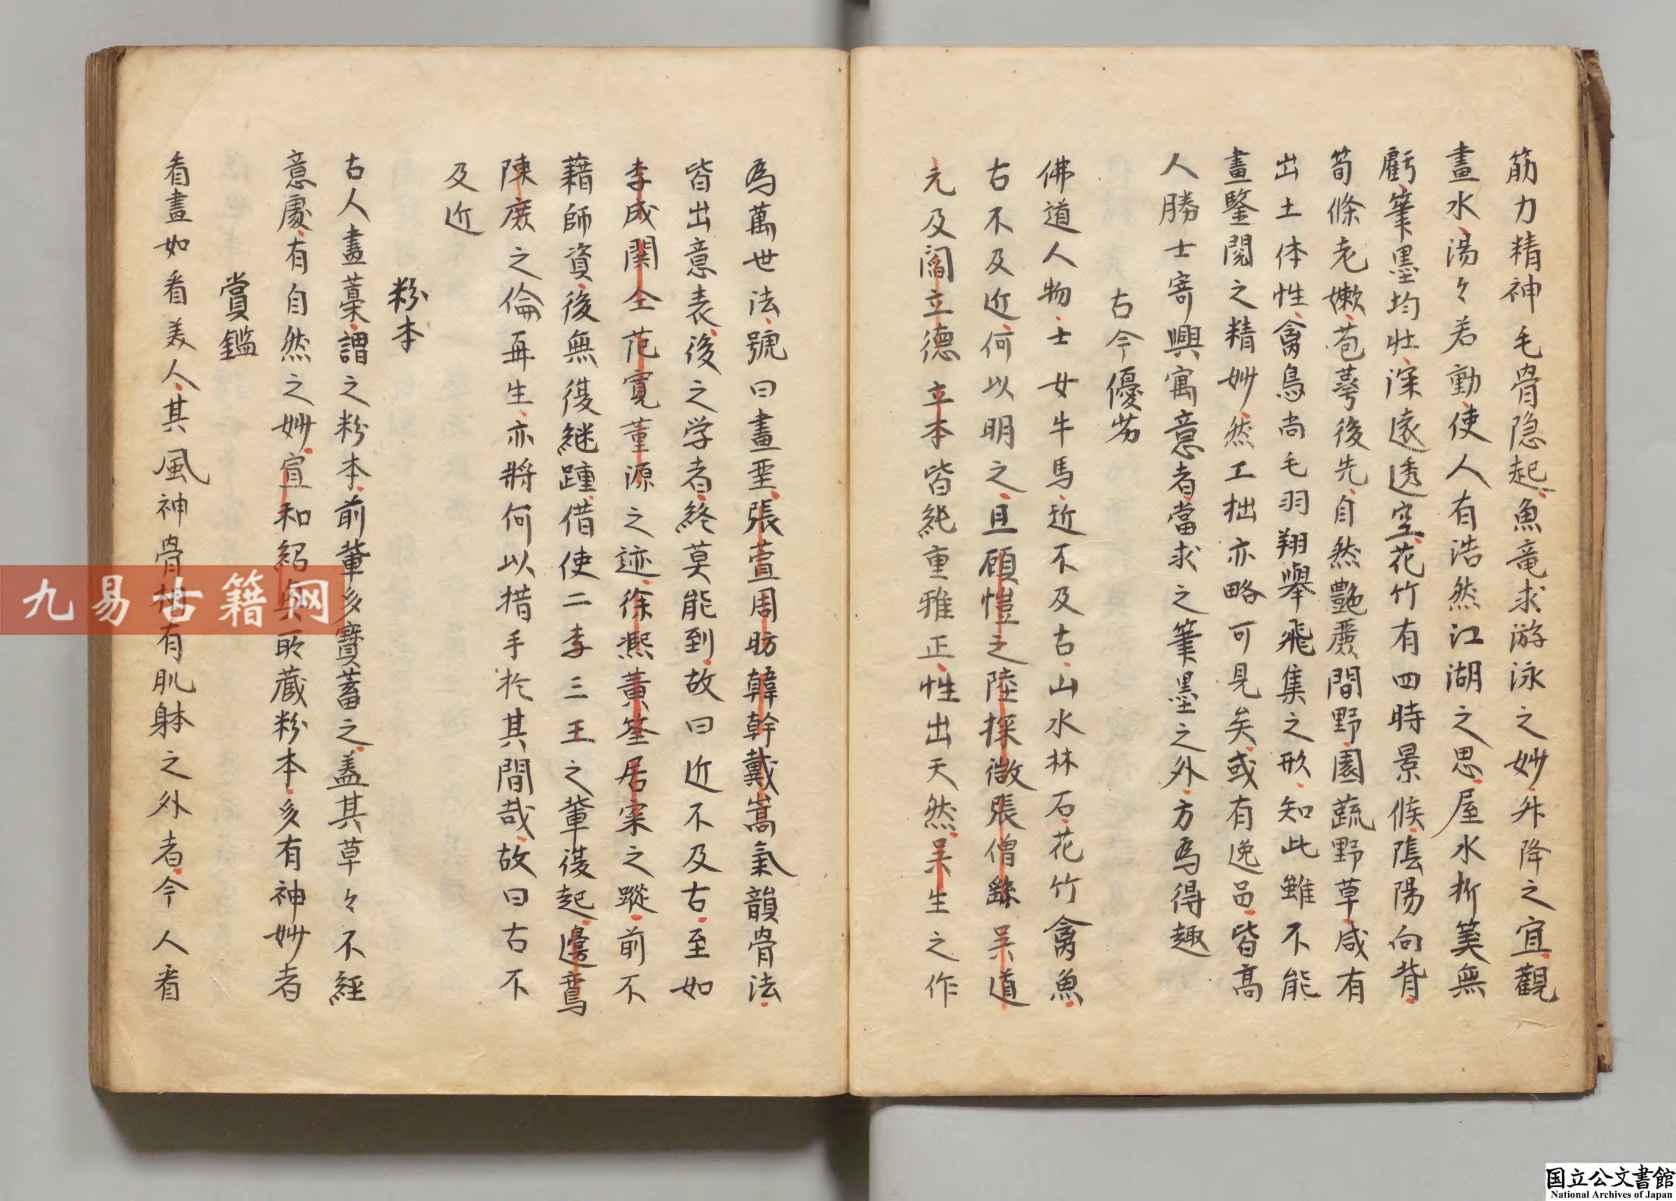 筋力精神毛骨隐起魚竜求游泳之妙升降之宜觀
畫水湯々若動使人有浩然江湖之思屋水折筭無
虧筆墨均壮深遠透空花竹有四時景候陰陽向背
筍條老嫩苞萼後先自然艶麗間野園蔬野草咸有
出土体性禽鳥尚毛羽翔舉飛集之形知此雖不能
畫鑒閲之精妙然工拙亦略可見矣或有逸品皆高
人勝士寄興寓意者當求之筆墨之外方為得趣
古今優劣
佛道人物士女牛馬近不及古山水林石花竹禽魚
古不及近何以明之且顧愷之陸探微張僧繇吴道
元及閻立德立本皆純重雅正性出天然吴生之作
為萬世法號曰畫聖張萱周昉韓幹戴嵩氣韻骨法
皆出意表後之学者終莫能到故曰近不及古至如
李成関仝范寛董源之迹徐熙黄筌居寀之蹤前不
藉師資後無復継踵借使二李三王之輩復起邊鸞
陳庶之倫再生亦将何以措手於其間哉故曰古不
及近
粉本
古人畫藁謂之粉本前輩多寶蓄之盖其草々不経
意處有自然之妙宣和紹興所蔵粉本多有神妙者
賞鑑
看畫如看美人其風神骨相有肌躰之外者今人看
九易古籍网
国立公文書館
National Archives of Japan